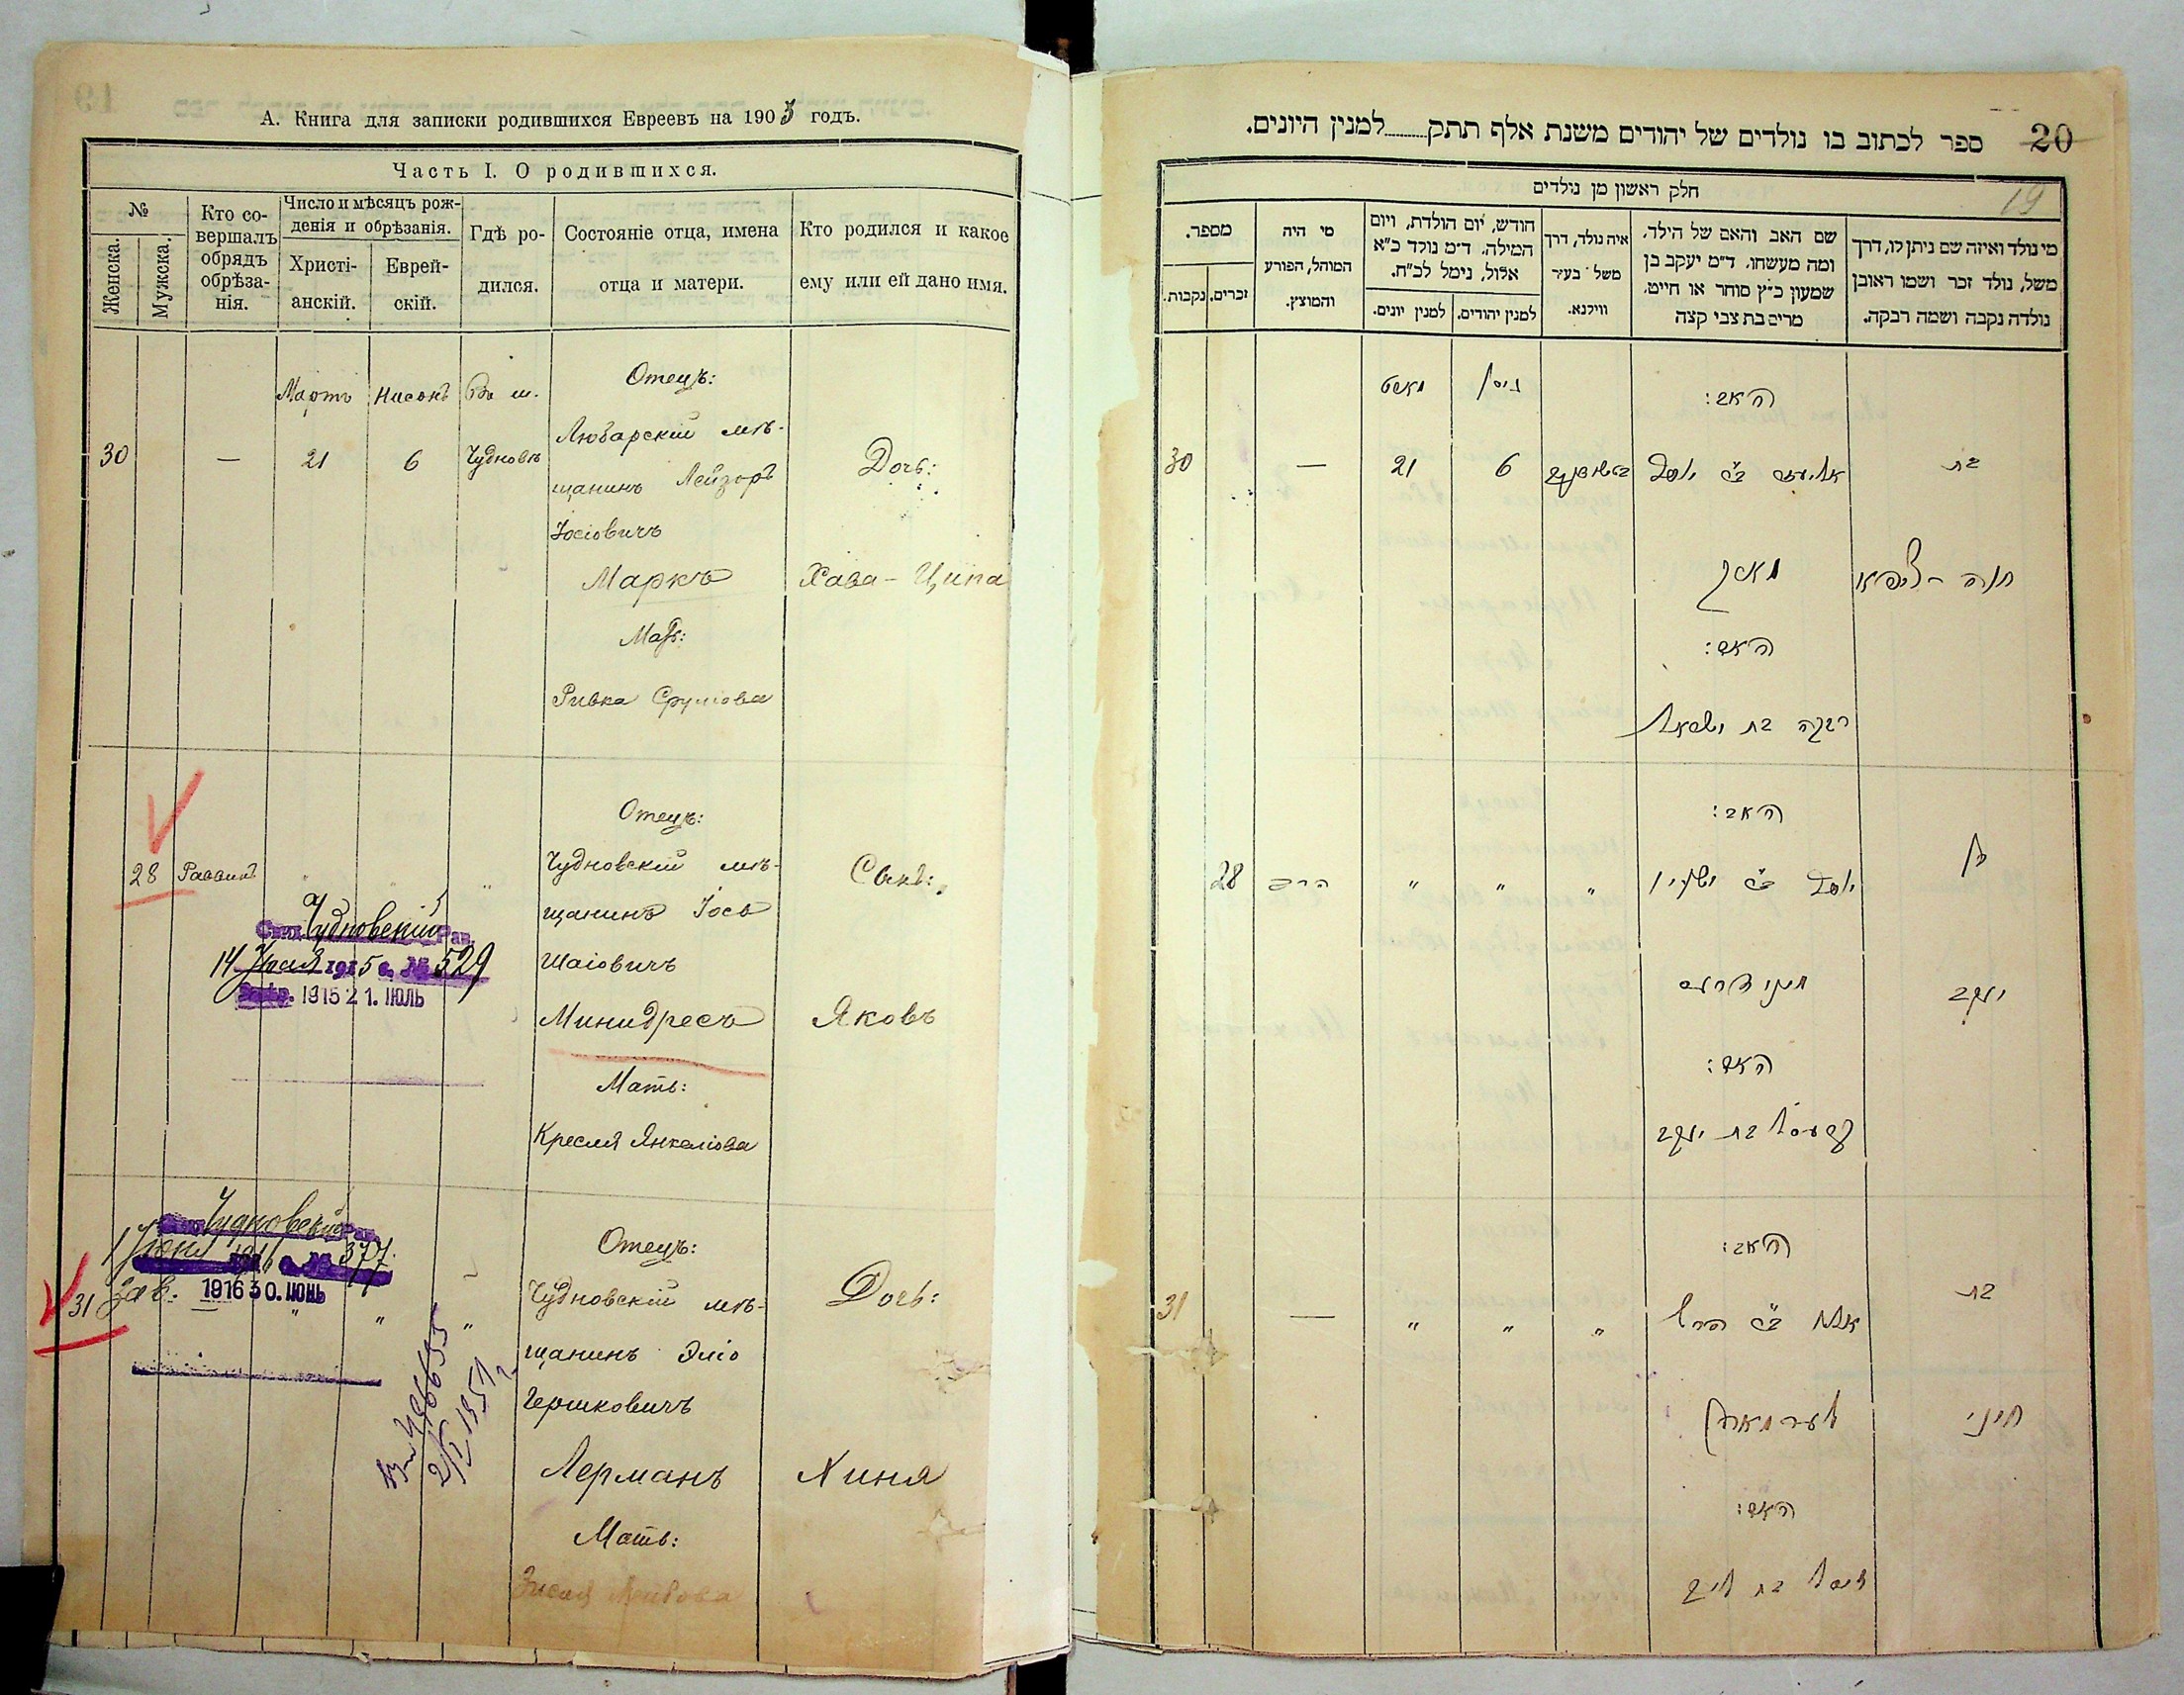 А. Книга для записки родившихся Евреевъ на 1903 годъ.
Часть I. О родившихся.
№
Женска.
Мужска.
Кто со-
вершалъ
обрядъ
обрѣза-
нія.
Число и мѣсяцъ рож-
денія и обрѣзанія.
Христі-
анскій.
Еврей-
скій.
Гдѣ ро-
дился.
Состояніе отца, имена
отца и матери.
Кто родился и какое
ему или ей дано имя.
Мартъ Нисонъ Въ м.
Отецъ:
30 — 21 6 Чудновѣ
Любарскій мѣ-
щанинъ Лейзоръ
Іосіовичъ
Маркъ
Мать:
Ривка Срулова
Дочь:
Хава-Ципа
28 Раввинъ " " "
Отецъ:
Чудновскій мѣ-
щанинъ Іось
Шаіовичъ
Минидресъ
Мать:
Кресля Янкеліова
Сынъ:
Яковъ
Чудновскій
14 1915 г. № 529
1915 21. ИЮЛЬ
Чудновскій
1916 № 377.
1916 30. ИЮНЬ
31 — " " "
Отецъ:
Чудновскій мѣ-
щанинъ Эліо
Гершковичъ
Лерманъ
Мать:
Дочь:
Хиня
20
ספר לכתוב בו נולדים של יהודים משנת אלף תתק למנין היונים.
19
חלק ראשון מן נולדים
מספר.
זכרים. נקבות.
מי היה
המוהל, הפורע
והמוצץ.
חודש, יום הולדת, ויום
המילה. ד״מ נולד כ״א
אלול, נימל לכ״ח.
למנין יהודים. למנין יונים.
איה נולד, דרך
משל בעיר
ווילנא.
שם האב והאם של הילד.
ומה מעשהו. ד״מ יעקב בן
שמעון כ״ץ סוחר או חייט.
מרים בת צבי קצה
מי נולד ואיזה שם ניתן לו, דרך
משל, נולד זכר ושמו ראובן
נולדה נקבה ושמה רבקה.
מארט ניסן
האב:
30 — 21 6
אליעזר ב״ר יוסף
בת
מארק
חוה-ציפא
האם:
רבקה בת ישראל
האב:
28 הרב " " "
יוסף ב״ר ישעי׳
בן
יעקב
האם:
בת יעקב
האב:
31 — " " "
בת
לערמאן
חיני
האם: